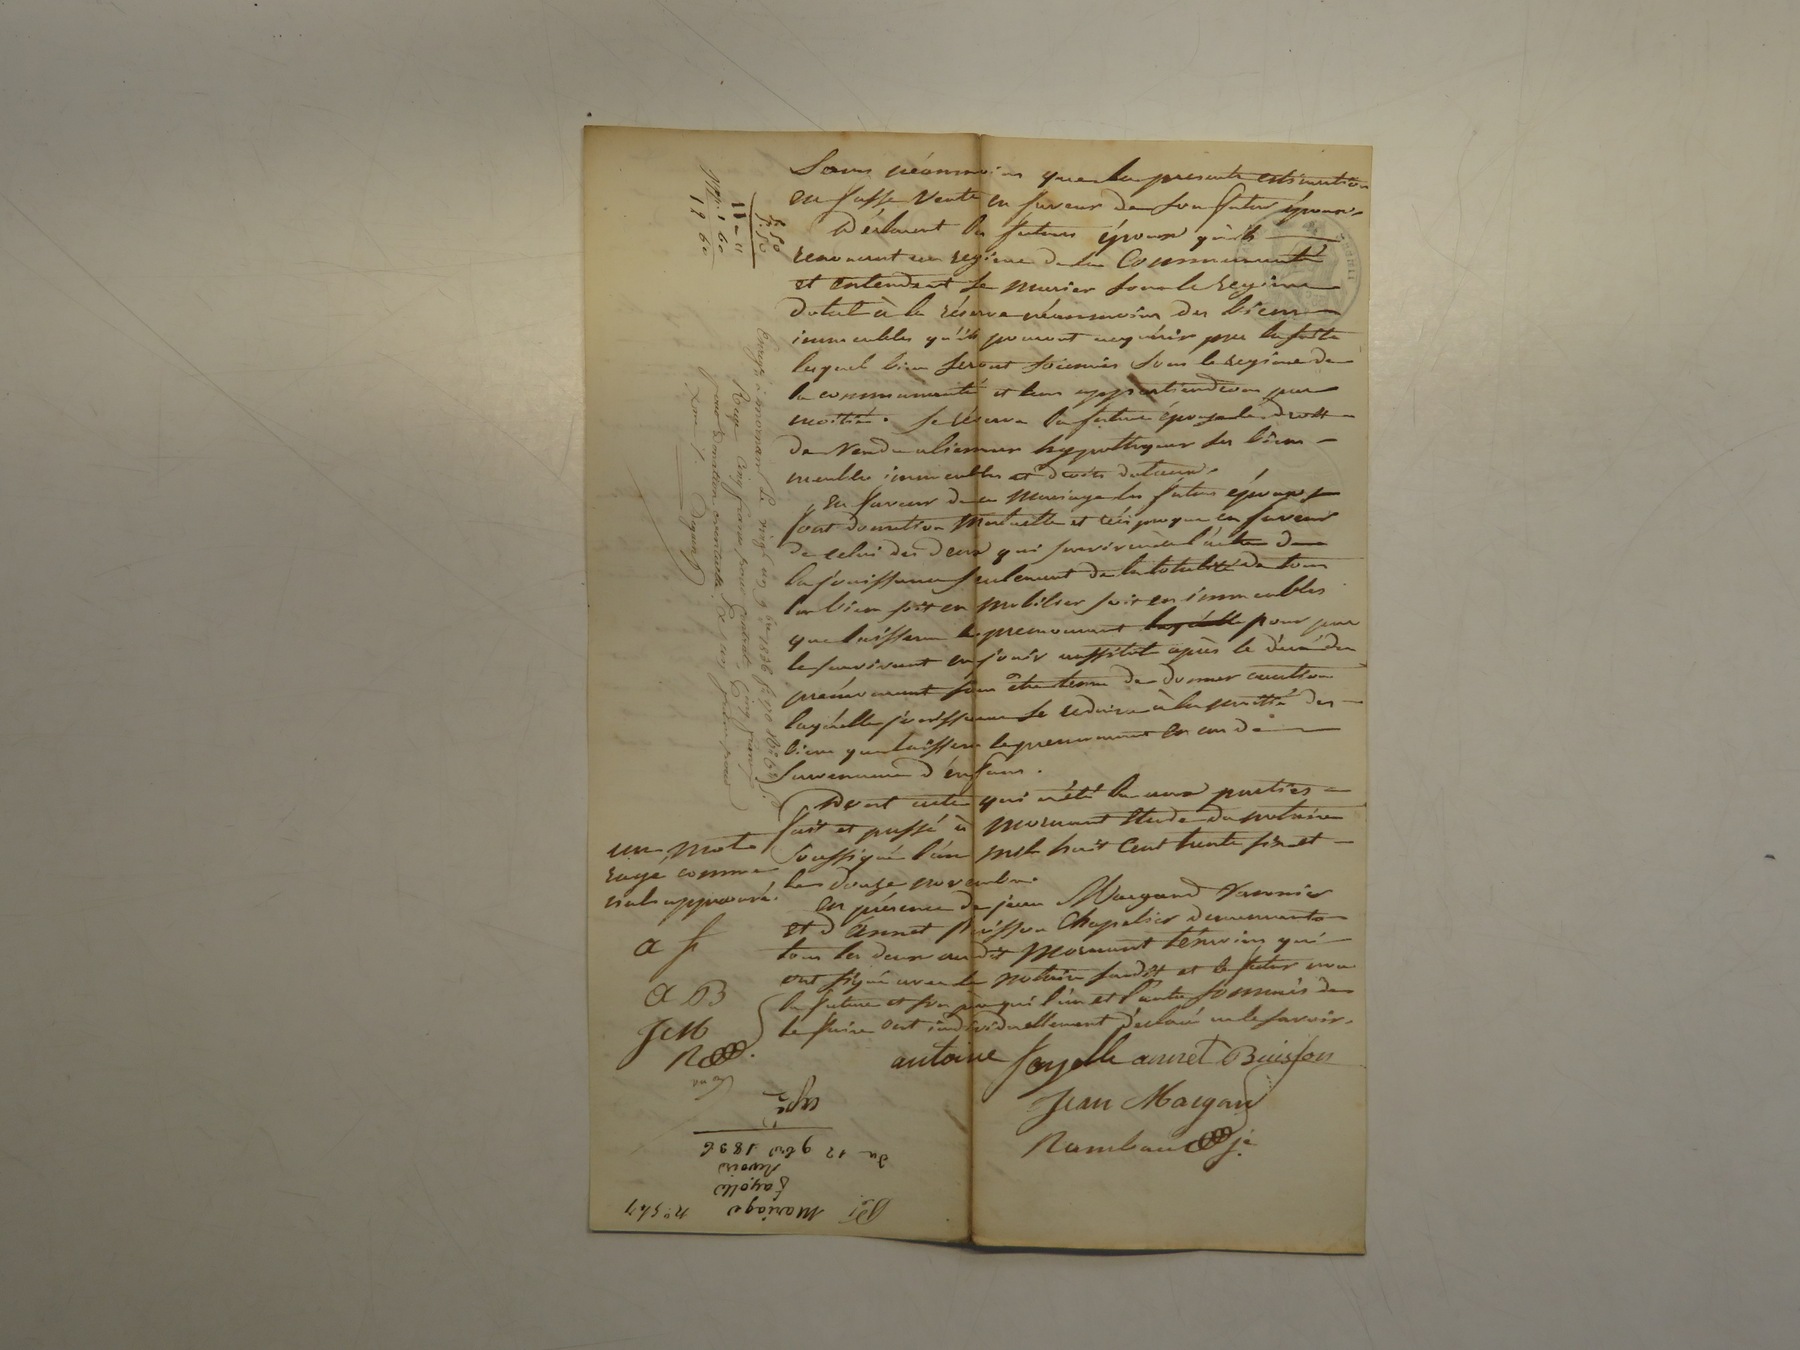 Sans néanmoins que la presente estimation
en fasse vente en faveur de son futur époux.
Déclarent les futurs époux qu'ils
renoncent au regime de la Communauté
et entendent se marier sous le regime
dotal à la réserve néanmoins des biens
immeubles qu'ils pourront acquérir par la suite
lesquels biens seront soumis sous le regime de
la communauté et leur appartiendront par
moitié. Se réserve la future épouse le droit
de vendre aliener hypothequer ses biens
meubles immeubles et droits dotaux.
En faveur de ce mariage les futurs époux se
font donation mutuelle et réciproque en faveur
de celui des deux qui survivra à l'autre de
la jouissance seulement de la totalité de tous
les biens soit en mobilier soit en immeubles
que laissera le premourant laquelle pour par
le survivant en jouir aussitôt après le décès du
prémourant sans être tenu de donner caution
laquelle jouissance se reduira à la moitié des
biens que laissera le premourant en cas de
survenance d'enfans.
Dont acte qui a été lu aux parties
fait et passé à Mornant Etude du notaire
soussigné l'an mil huit cent trente six et
le douze novembre
en présence de jean Margand
et d'Annet Buisson Chapelier demeurants
tous les deux audit Mornant témoins qui
ont signé avec le notaire susdit et le futur non
la future et son père qui l'un et l'autre sommés de
le faire ont individuellement déclaré ne le savoir.
antoine fayolle annet Buisson
Jean Margand
Rambaud
un mot
rayé comme
nul approuvé.
a f
A B
J M
R
5 50
5 50
11 "
1 60
12 60
Enregistré à mornant le vingt un 9bre 1836
Reçu cinq francs pour contrat, cinq francs
pour donation éventuelle
n° 547
Mariage
fayolle
Du 12 9bre 1836
Expé